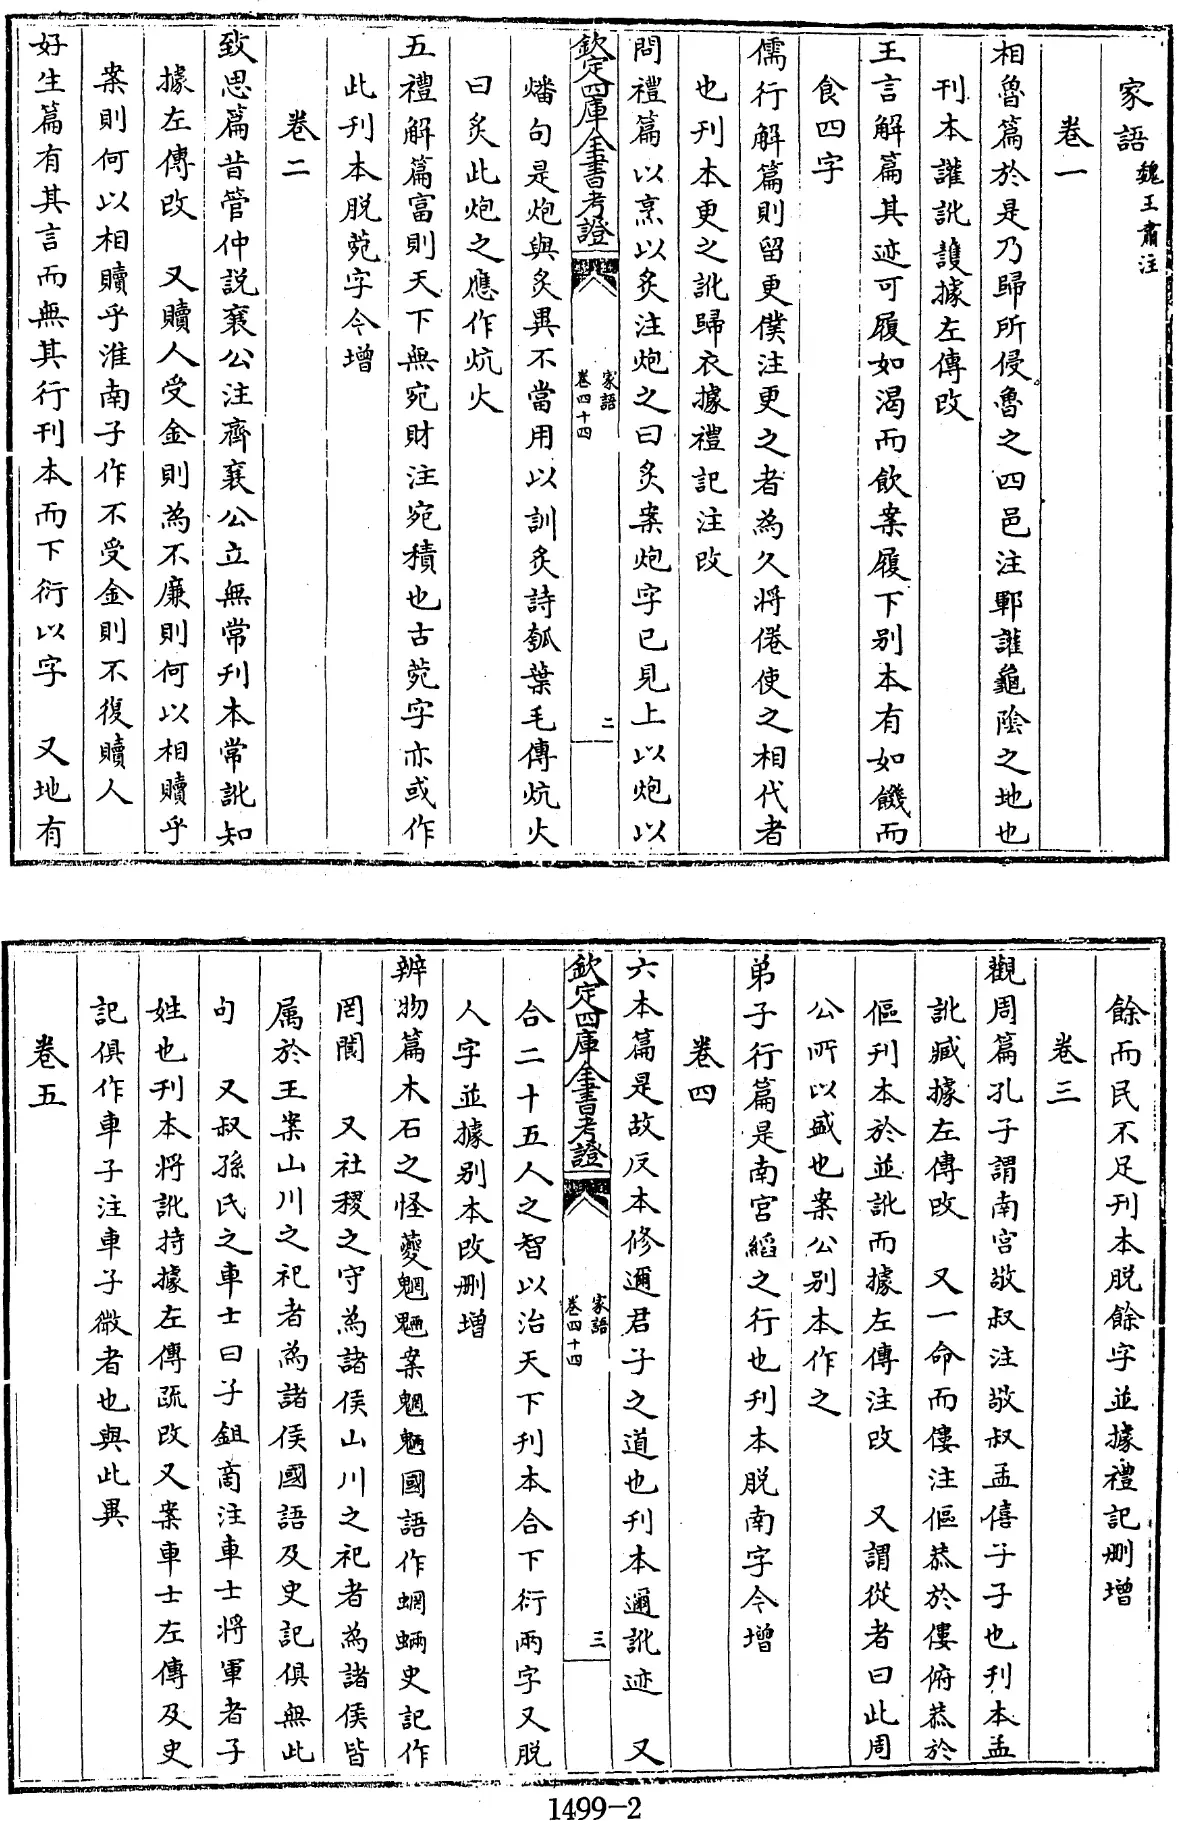 家語魏王肅注
卷一
相魯篇於是乃歸所侵魯之四邑注鄆讙龜陰之地也
刊本讙訛護據左傳改
王言解篇其迹可履如渴而飲案履下别本有如饑而
食四字
儒行解篇則留更僕注更之者為久將倦使之相代者
也刊本更之訛歸衣據禮記注改
問禮篇以烹以炙注炮之曰炙案炮字已見上以炮以
欽定四庫全書考證
家語
卷四十四
二
燔句是炮與炙異不當用以訓炙詩瓠葉毛傳炕火
曰炙此炮之應作炕火
五禮解篇富則天下無宛財注宛積也古菀字亦或作
此刊本脱菀字今增
卷二
致思篇昔管仲説襄公注齊襄公立無常刊本常訛知
據左傳改　又贖人受金則為不廉則何以相贖乎
案則何以相贖乎淮南子作不受金則不復贖人
好生篇有其言而無其行刊本而下衍以字　又地有
餘而民不足刊本脱餘字並據禮記刪增
卷三
觀周篇孔子謂南宮敬叔注敬叔孟僖子子也刊本孟
訛臧據左傳改　又一命而僂注傴恭於僂俯恭於
傴刊本於並訛而據左傳注改　又謂從者曰此周
公所以盛也案公别本作之
弟子行篇是南宮縚之行也刊本脱南字今增
卷四
六本篇是故反本修邇君子之道也刊本邇訛迹　又
欽定四庫全書考證
家語
卷四十四
三
合二十五人之智以治天下刊本合下衍兩字又脱
人字並據别本改刪增
辨物篇木石之怪夔魍魎案魍魎國語作蝄蜽史記作
罔閬　又社稷之守為諸侯山川之祀者為諸侯皆
属於王案山川之祀者為諸侯國語及史記俱無此
句　又叔孫氏之車士曰子鉏商注車士將軍者子
姓也刊本將訛持據左傳疏改又案車士左傳及史
記俱作車子注車子微者也與此異
卷五
1499-2